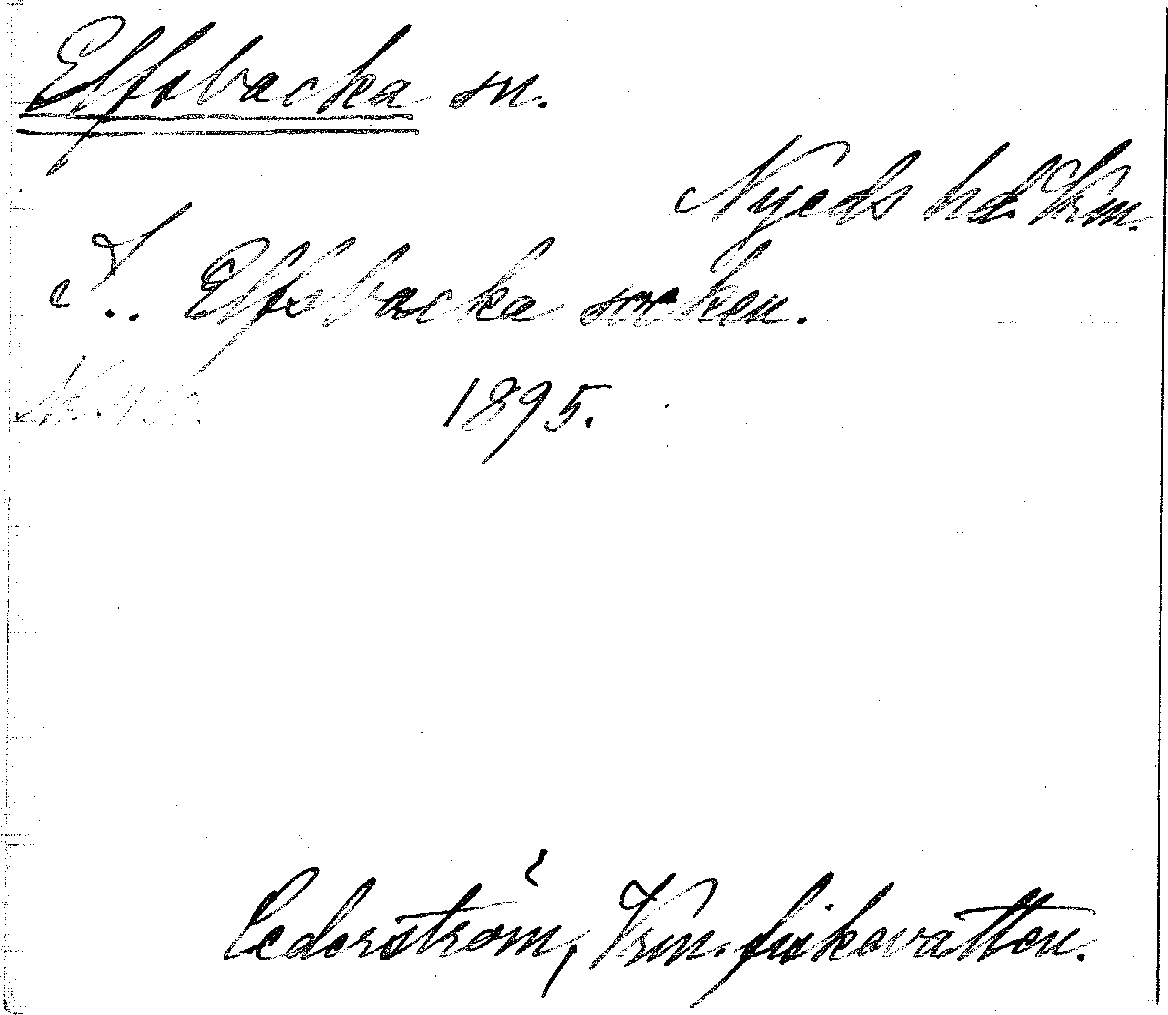 Elfsbacka sn.
Nyeds hd Vrm.
I.. Elfsbacka socken.
1895.
Cederström, Vrm. fiskevatten.